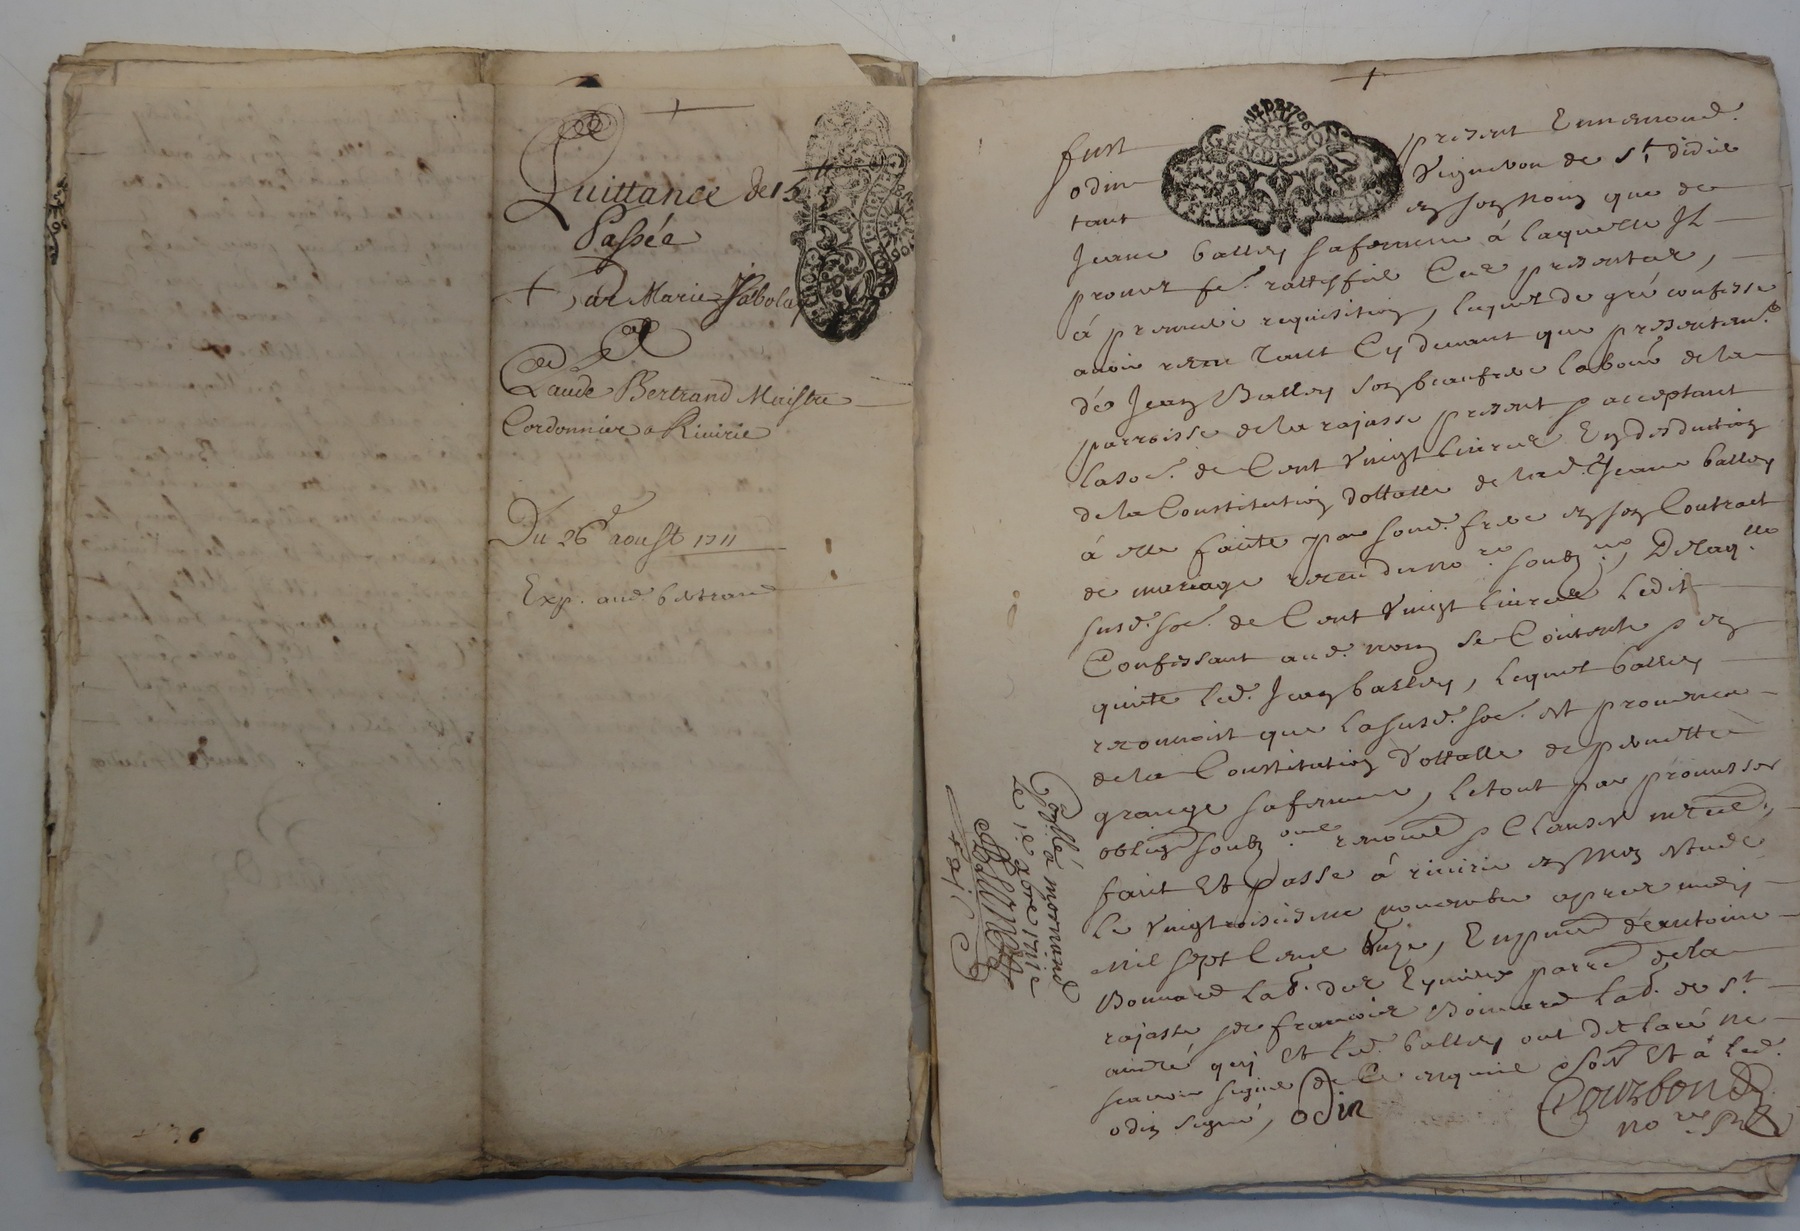 Quittance de 15ᵗᵗ
Passée
Par Marie
A
Claude Bertrand Maistre
Cordonnier a Riuirie
Du 26ᵉ aoust 1711
Exp. aud. bertrand
6
fust present Ennemond.
odin Vigneron de Sᵗ didié
tant en son nom que de
Jeane balley sa femme á laquelle Il
promet fᵉ. rattiffier Ces presentes,
á premiere requisition, lequel de gré confesse
auoir receu tant Cy deuant que presentemᵗ.
de Jean Balley son beaufrere labourᵉ de la
parroisse de la rajasse present & acceptant
la soᵉ. de Cent Vingt liures En desduction
de la Constitution dottalle de lad. Jeane balley
á elle faitte par soud. frere en son Contract
de mariage receu du noʳᵉ soubzⁿᵉ, Delaqˡˡᵉ
susd. soᵉ. de Cent Vingt liures ledit
Confessant aud. nom se Contente & en
quitte led. Jean balley, lequel balley
reconnoist que la susd. soᵉ. est prouenüe
de la Constitution dottalle de pernette
grange sa femme, le tout par promesses
obligᵒⁿ soubzᵒⁿˢ renonᵒⁿ & Clauses
fait Et passé á riuirie en mon estude
le Vingtroisiesme nouembre apres midy
mil sept Cent Unze, En pñce d'antoine
Bonnard labʳ. des parrᵉ de la
rajasse & francois Bonnard labʳ. de Sᵗ
andré quj Et led. balley ont declaré ne
scauoir signer de Ce enquis & somᵉ Et á led.
odin signé, odin
Courbon
noʳᵉ
Conˡˡé á mornand
Le 1ᵉ xbre 1711